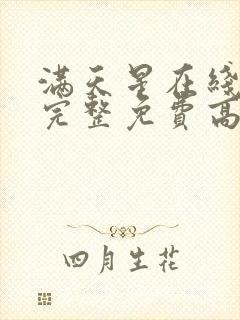 满天星在线
完整免費高
四月生花